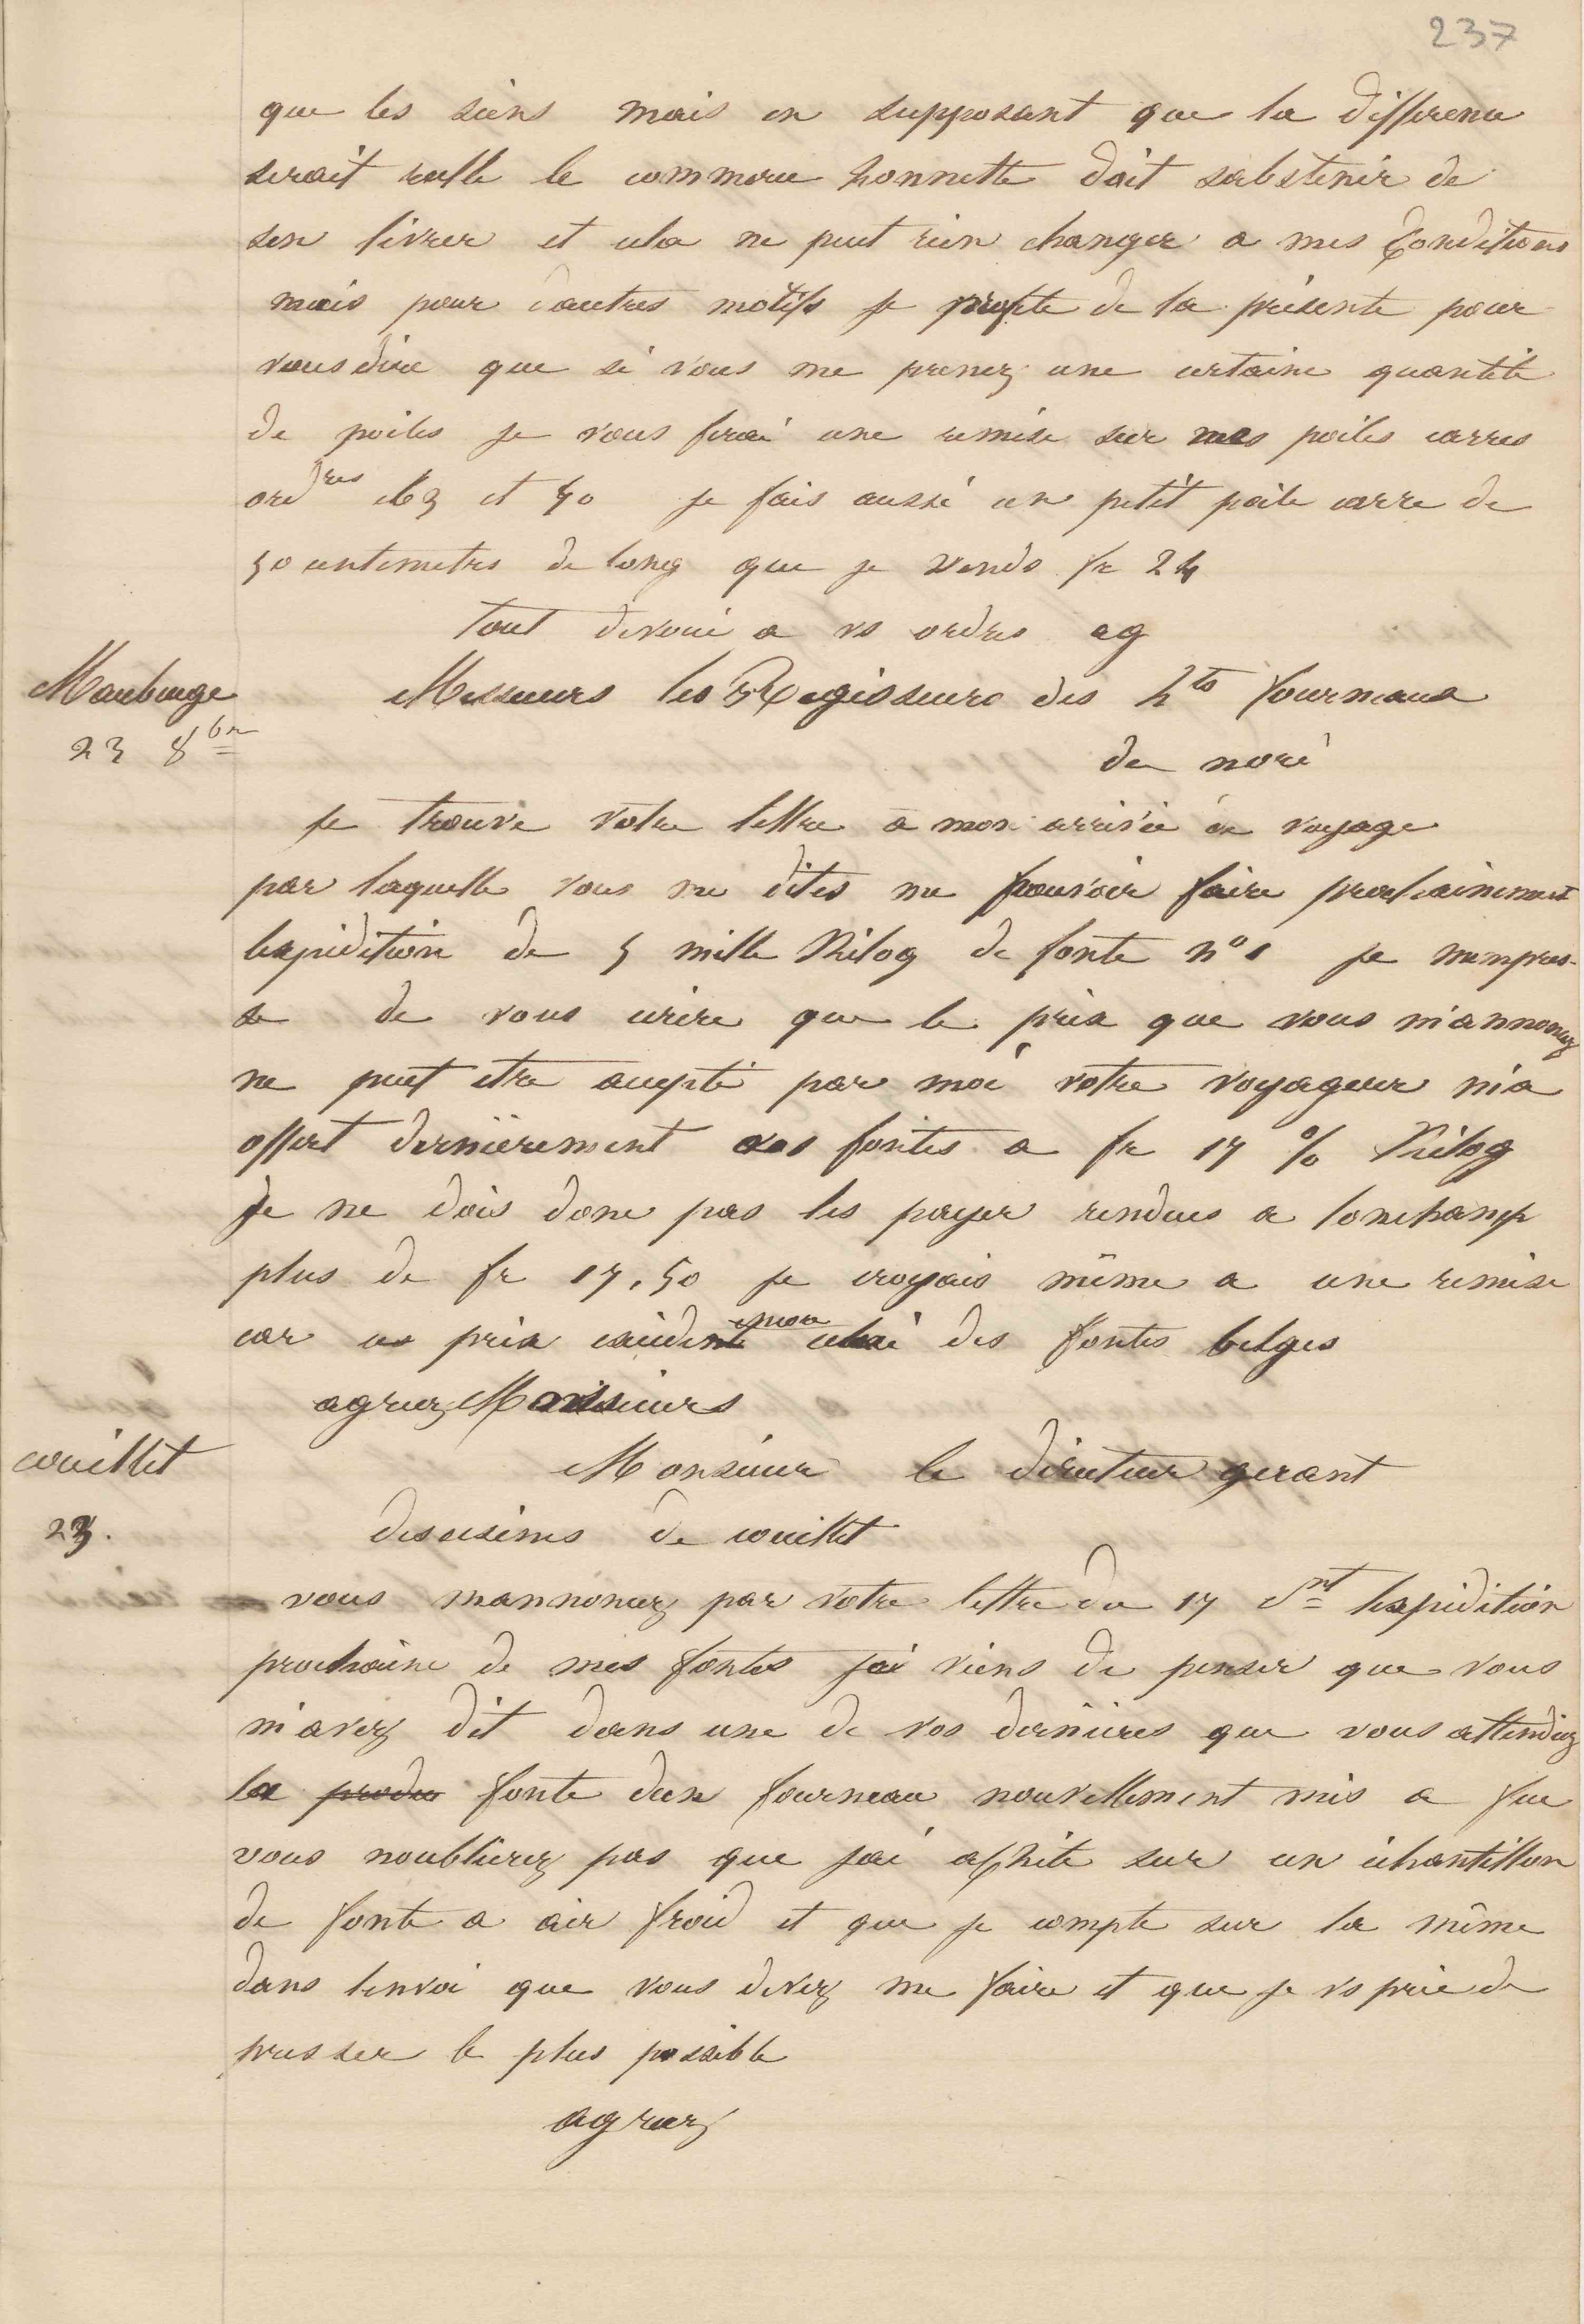 237
que les siens mais en supposant que la differenc
serait reelle le commerce honnette doit sabstenir de
sen livrer et cela ne peut rien changer a mes Conditions
mais pour dautres motifs je profite de la présente pour
vous dire que si vous me prenez une certaine quantité
de poiles je vous ferai une remise sur mes poiles carres
ord res et 50 je fais aussi un petit poile carre de
50 centimetres de long que je vends fr 24
tout devoué a vs ordres ag
Maubeuge
23 8bre
Messieurs les Regisseurs des hts fourneaux
de
je trouve votre lettre a mon arrivée de voyage
par laquelle vous me dites me pouvoir faire prochainement
lexpidition de 5 mille Kilog de fonte n° 1 je mempres-
se de vous ecrire que le prix que vous m'annoncez
ne peut etre accepté par moi votre voyageur m'a
offert dernièrement vos fontes a fr 17 % Kilog
Je ne dois donc pas les payer rendues a lonchamp
plus de fr 17,50 je croyais même a une remise
car ce prix des fontes belges
agreez Messieurs
couillet
23.
Monsieur le directeur gerant
des usines de couillet
vous mannoncez par votre lettre du 17 Ct lexpidition
prochaine de mes fontes je viens de penser que vous
m'avez dit dans une de vos dernières que vous attendiez
la produ fonte dun fourneau nouvellement mis a feu
vous noublierez pas que jai achité sur un échantillon
de fonte a air froid et que je compte sur la même
dans lenvoi que vous devez me faire et que je vs prie de
presser le plus possible
agreez